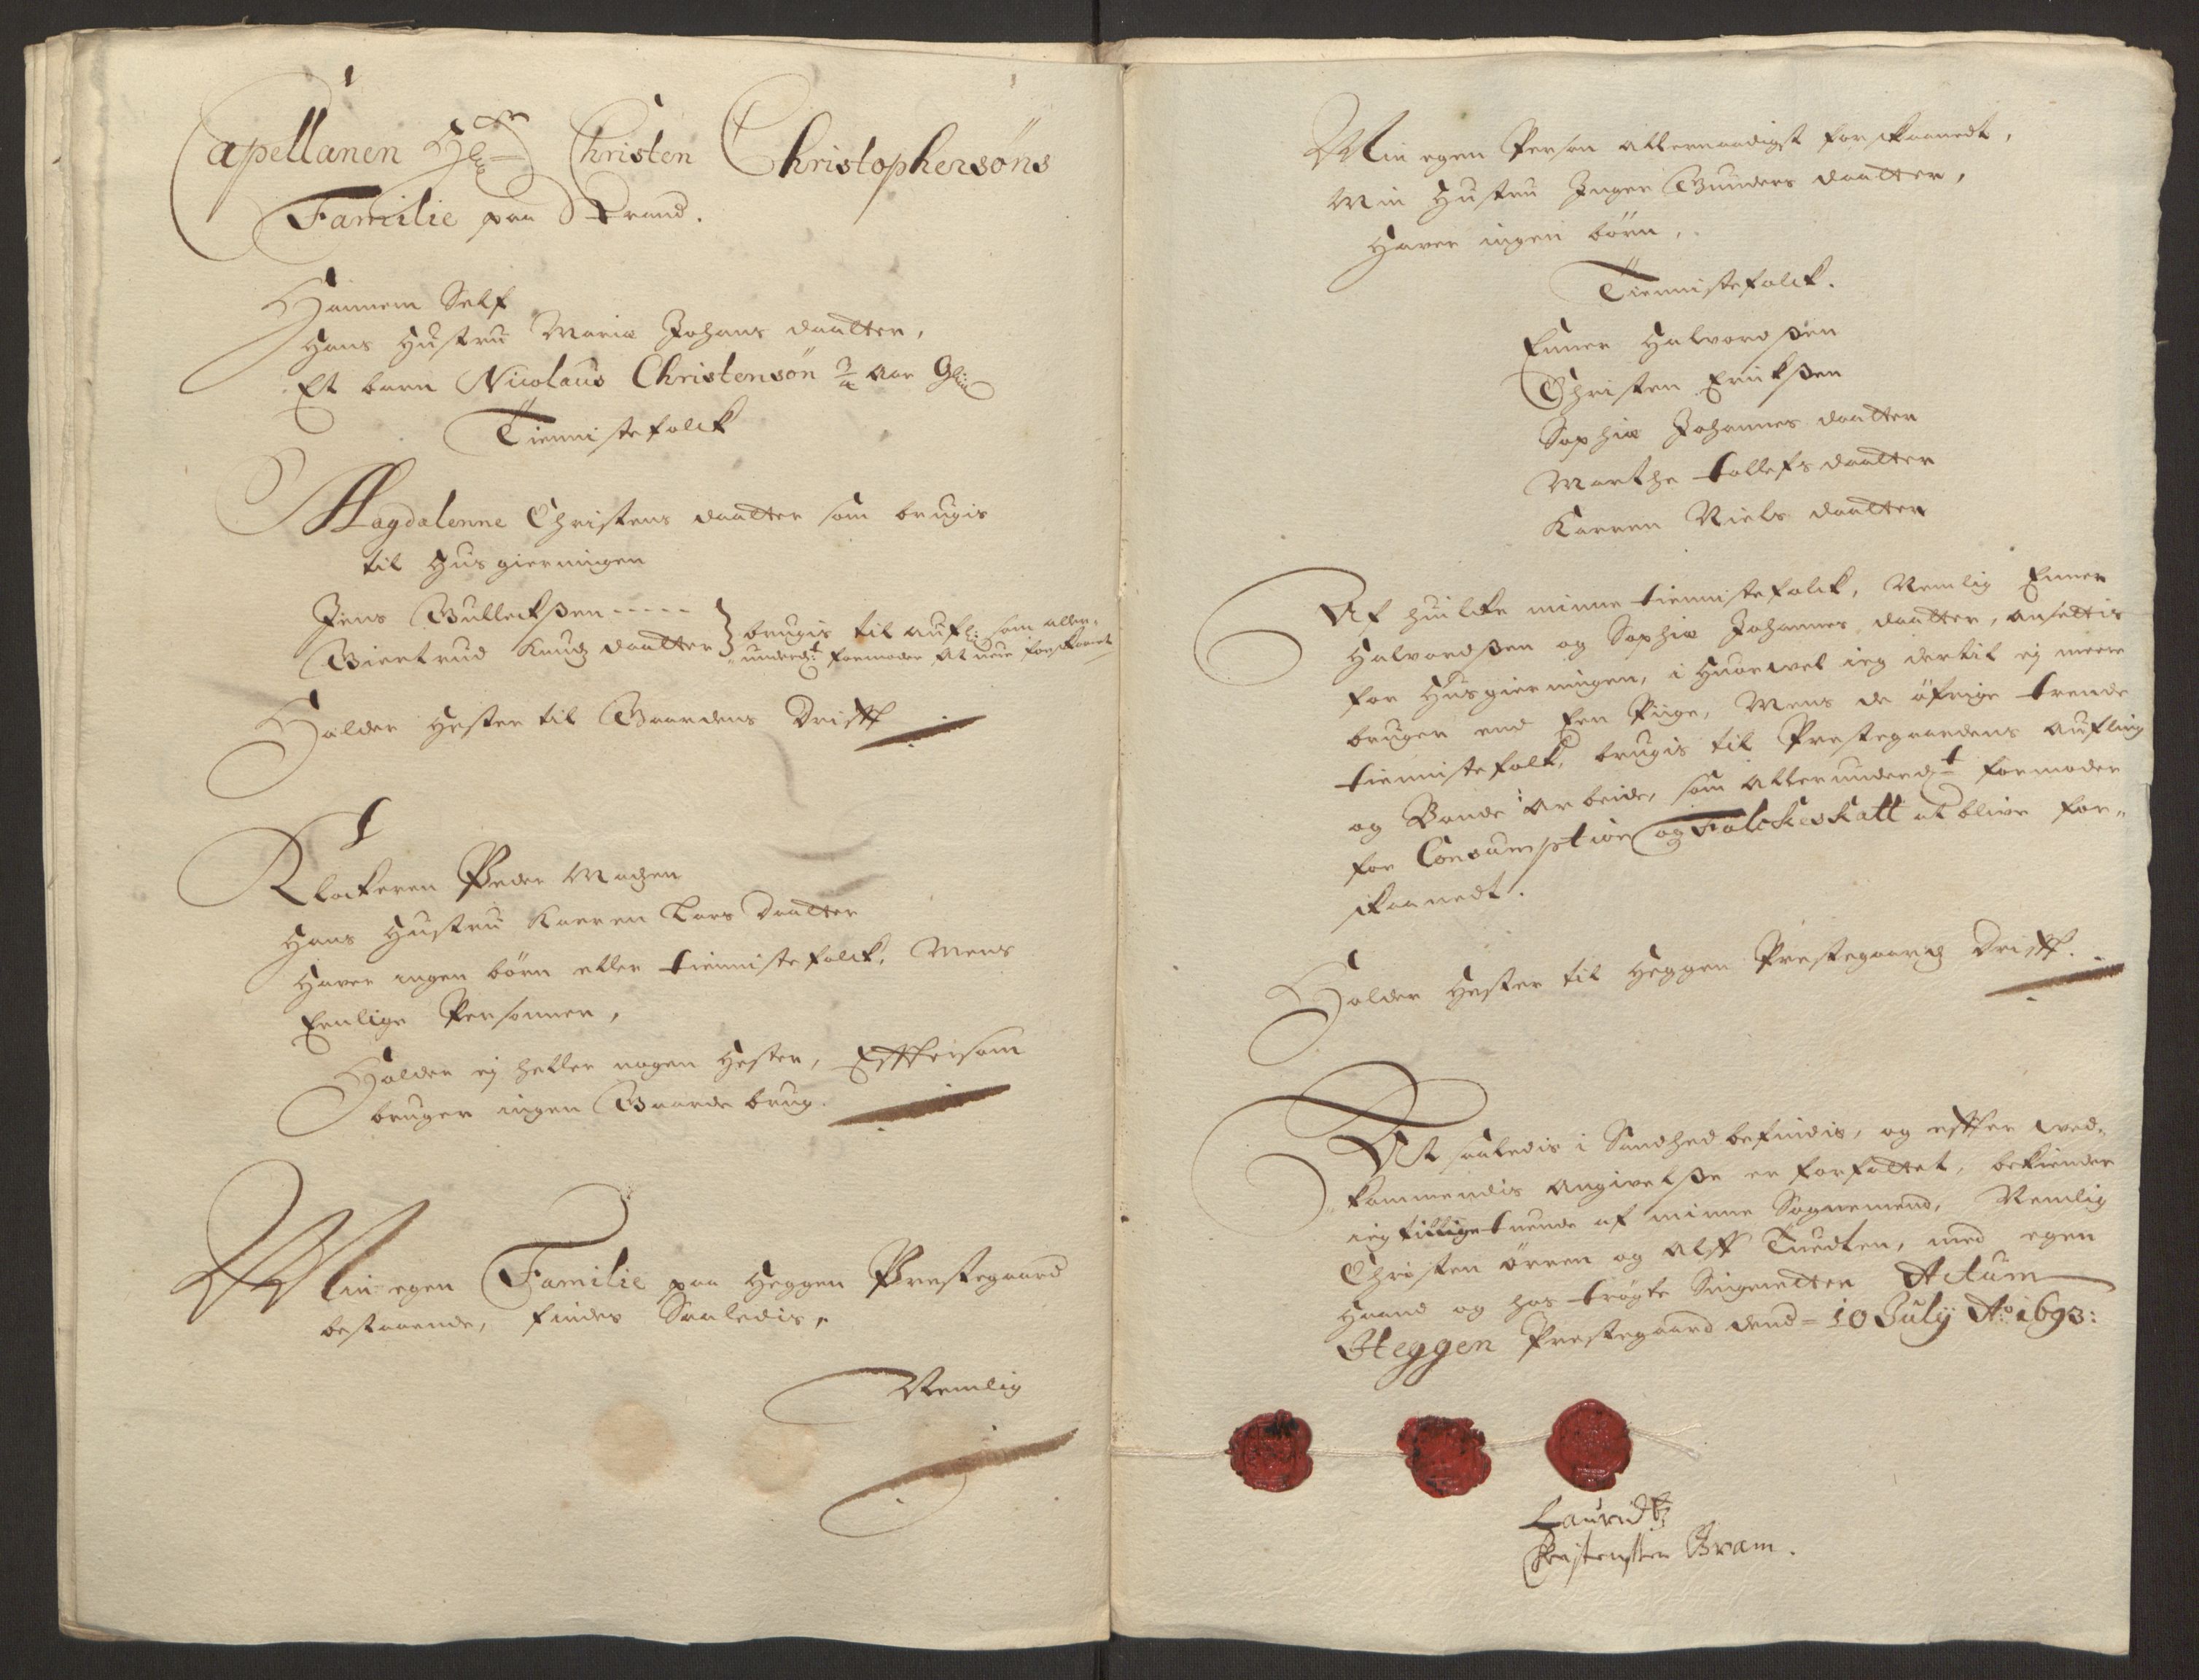 Capellanen Hr: Christen Christophersöns
Familie paa Strand.
Hannem Self
Hans Hustru Maria Johans daatter,
Et barn Nicolaus Christensön aar Gl:
Tiennistefolck
Magdalenne Christens daatter som brugis
til Husgierningen
Jens Gulleichßen - - - - -
Giertrud Knudz daatter } brugis til aufl: som aller-
underd:t formoder at vere forskont
Holder Hester til Gaardens Drifft
Klockeren Peder Madzen
Hans Hustru Karren Lars Daatter
Haver ingen börn eller tiennistefolck, Mens
Eenlige Personner,
Holder ej heller nogen Hester, Effttersom
bruger ingen Gaarde brug.
Min egen Familie paa Heggen Prestegaard
bestaaende, findes Saaledis,
Nemlig
Min egen Person allernaadigst forskaanedt,
Min Hustru Inger Gunders daatter,
Haver ingen börn,
Tiennistefolck.
Enner Halvordßen
Christen Erickßen
Sophia Johannes daatter
Marthe tollefs daatter
Karren Niels daatter
Af huilcke minne tiennistefolck, Nemlig Enner
Halvordßen og Sophia Johannes daatter, ansettis
for Husgierningen, i Huorvel ieg dertil ej meere
bruger end Een Piige, Mens de öfrige trende
tiennistefolck, brugis til Prestegaardens aufling
og Bonde arbeide, som allerunderd:t formoder
for Consumption og Folckeskatt at blive for-
skaanedt.
Holder Hester til Heggen Prestegaardz Drifft.
At saaledis i Sandhed befindis, og effter ved-
kommendis angivelße er forfattet, bekiender
ieg tillige tuende af minne Sognemend, Nemlig
Christen örren og Alff Tuedten, med egen
Haand og hos trögte Signetter Actum
Heggen Prestegaard dend 10 July Ao: 1693:
Lauridtz
Christensßen Gram.